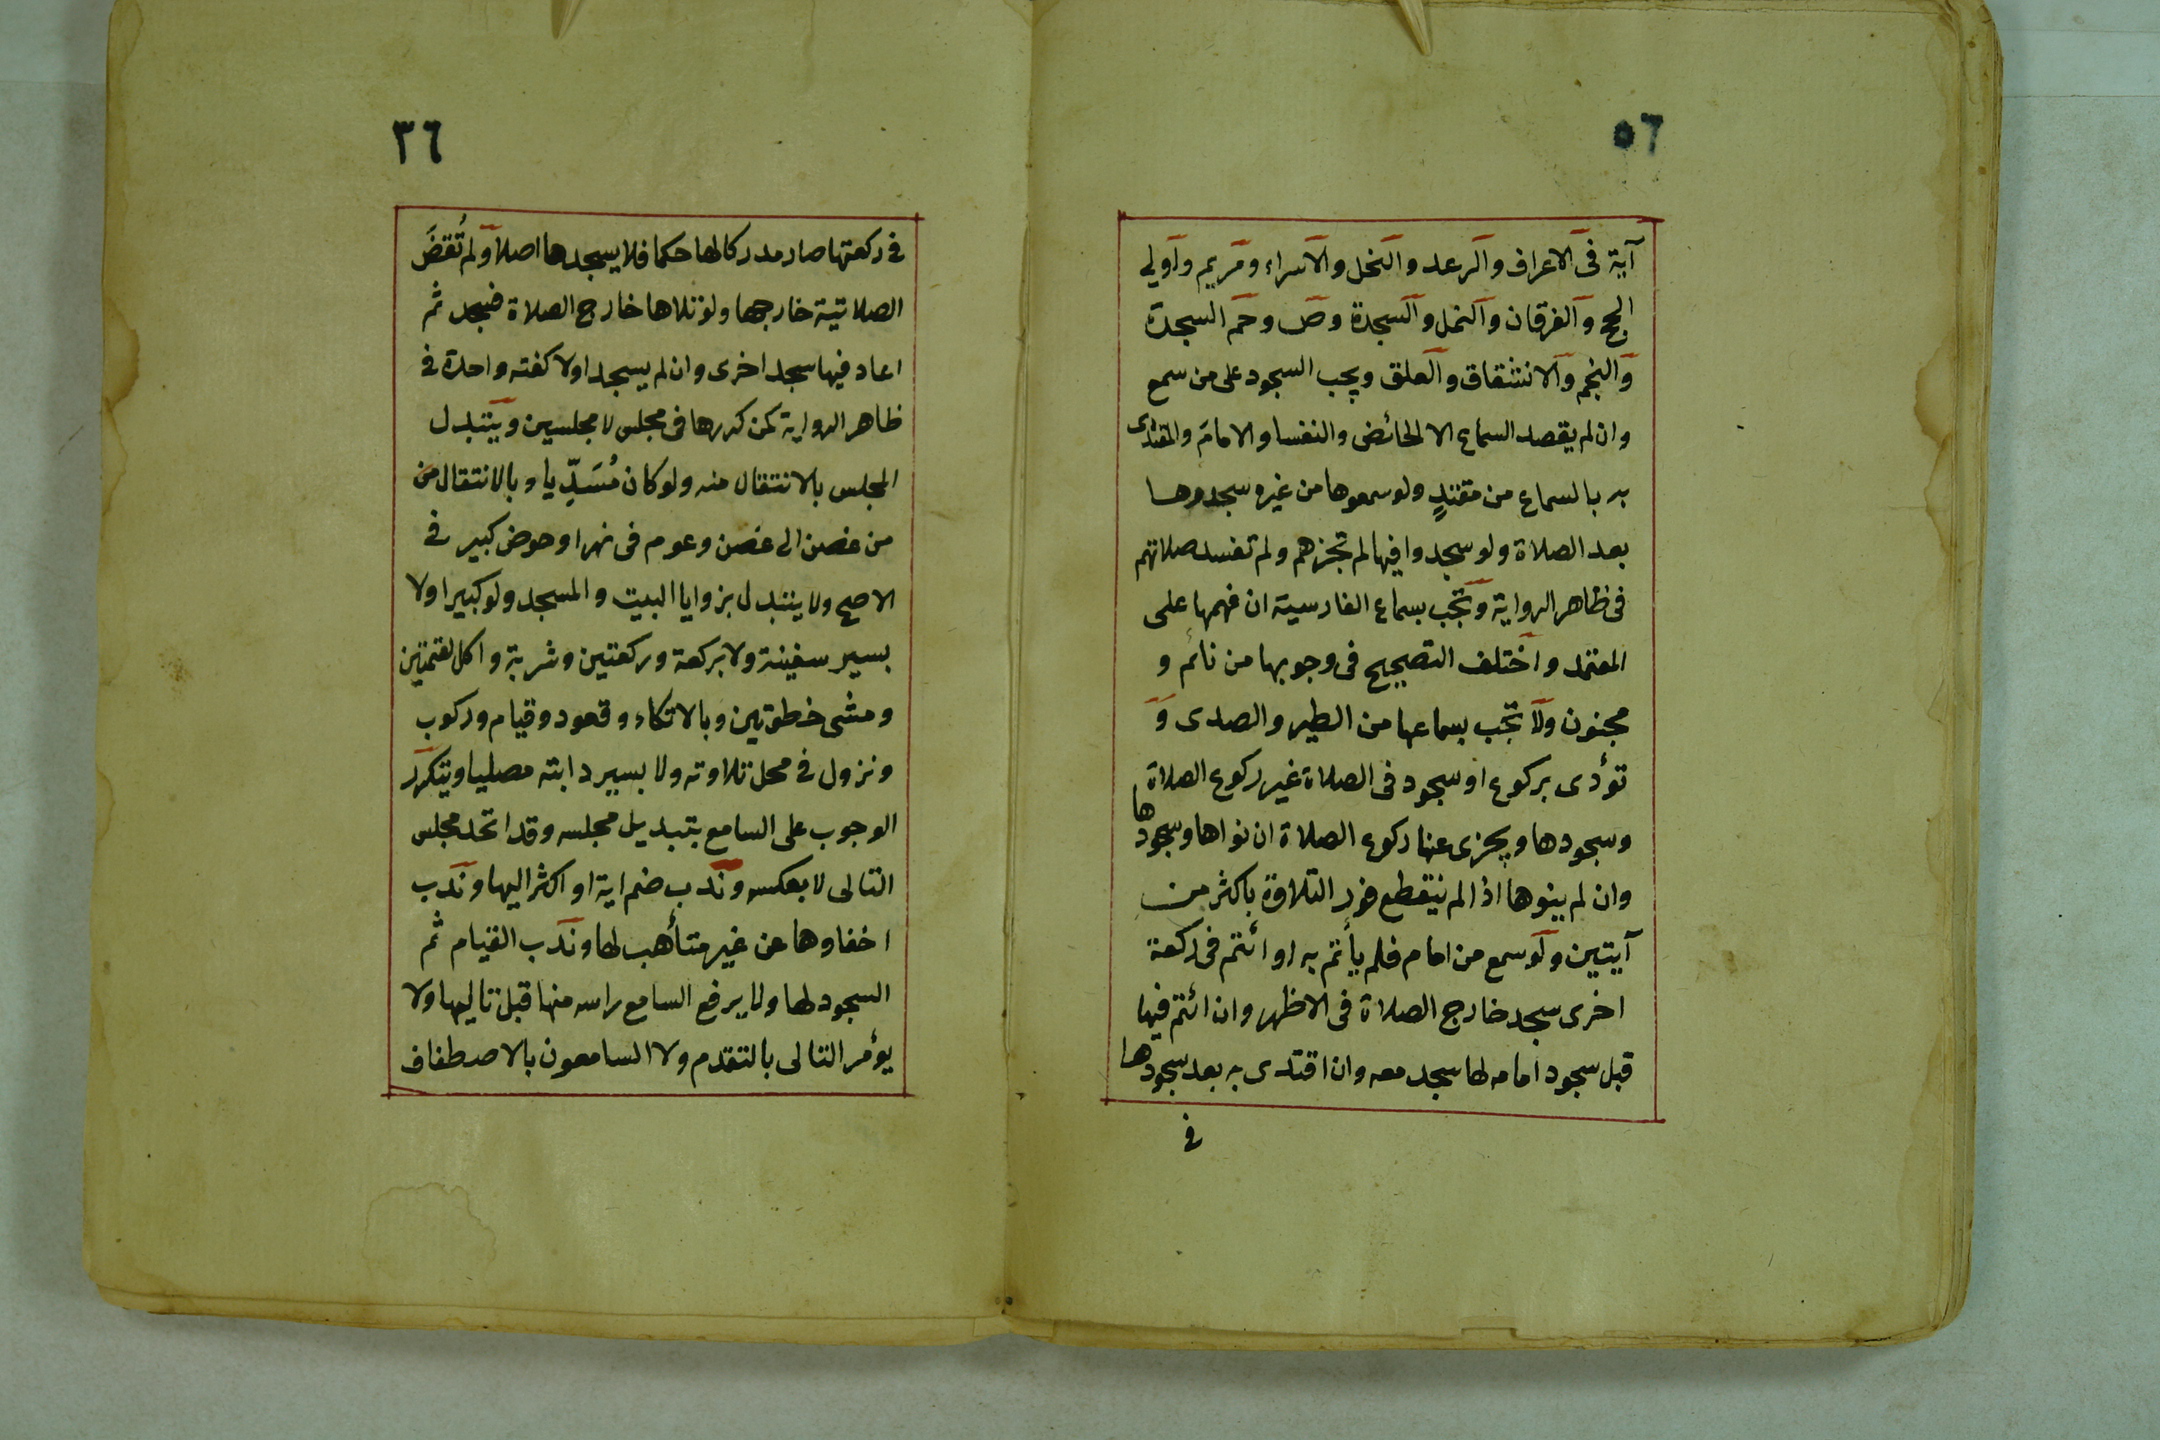 ٥٦
آية فى الاعراف والرعد والنخل والاسراء ومريم واولى
الحج والفرقان والنمل والسجدة وص وحم السجدة
والنجم والانشقاق والعلق ويجب السجود على من سمع
وان لم يقصد السماع الا الحائض والنفسا والامام والمقتدى
به بالسماع من مقتدٍ ولو سمعوها من غيره سجدوها
بعد الصلاة ولو سجدوا فيها لم تجزهم ولم تفسد صلاتهم
فى ظاهر الرواية وتجب بسماع الفارسية ان فهمها على
المعتمد واختلف التصحيح فى وجوبها من نائم و
مجنون ولا تجب بسماعها من الطير والصدى و
تؤدى بركوع او سجود فى الصلاة غير ركوع الصلاة
وسجودها ويجزى عنها ركوع الصلاة ان نواها وسجودها
وان لم ينوها اذا لم ينقطع فور التلاوة باكثر من
آيتين ولو سمع من امام فلم يأتم به او ائتم فى ركعة
اخرى سجد خارج الصلاة فى الاظهر وان ائتم فيها
قبل سجود امامه لها سجد معه وان اقتدى به بعد سجودها
فى
٣٦
فى ركعتها صار مدركا لها حكما فلا يسجدها اصلا ولم تُقضَ
الصلاتية خارجها ولو تلاها خارج الصلاة فسجد ثم
اعاد فيها سجد اخرى وان لم يسجد اولا كفته واحدة فى
ظاهر الرواية كمن كررها فى مجلس لا مجلسين ويتبدل
المجلس بالانتقال منه ولو كان مُسَدِّيا وبالانتقال من
من غصن الى غصن وعوم فى نهر او حوض كبير فى
الاصح ولا يتبدل بزوايا البيت والمسجد ولو كبيرا ولا
بسير سفينة ولا بركعة وركعتين وشربة واكل لقمتين
ومشى خطوتين وبالاتكاء وقعود وقيام وركوب
ونزول فى محل تلاوته ولا بسير دابته مصليا ويتكرر
الوجوب على السامع بتبديل مجلسه وقد اتحد مجلس
التالى لا بعكسه وندب ضم اية او اكثر اليها وندب
اخفاوها عن غير متأهب لها وندب القيام ثم
السجود لها ولا يرفع السامع راسه منها قبل تاليها ولا
يؤمر التالى بالتقدم ولا السامعون بالاصطفاف